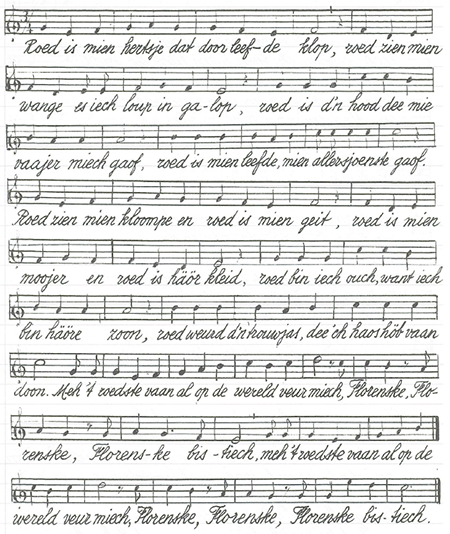 Roed is mien hertsje dat door leef-de klop, roed zien mien
wange es iech loup in ga-lop, roed is d'n hood dee mie
vaajer miech gaof, roed is mien leefde, mien allersjoenste gaof.
Roed zien mien kloompe en roed is mien geit, roed is mien
moojer en roed is häör kleid, roed bin iech ouch, want iech
bin häöre zoon, roed weurd d'n houwjas, dee 'ch haos höb vaan
doon. Meh 't roedste vaan al op de wereld veur miech, Florenske, Flo-
renske, Florens-ke bis-tiech, meh 't roedste vaan al op de
wereld veur miech, Florenske, Florenske, Florenske bis-tiech.